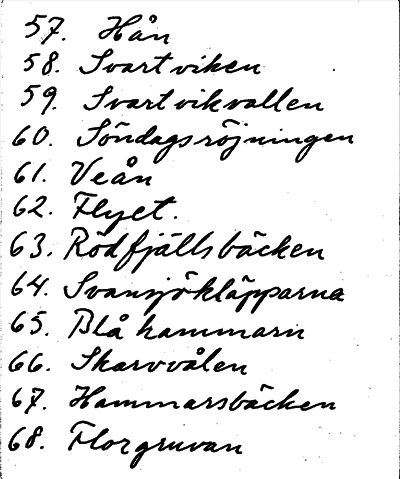 57. Hån
58. Svartviken
59. Svartvikvallen
60. Söndagsröjningen
61. Veån
62. Flyet.
63. Rödfjällsbäcken
64. Svansjökläpparna
65. Blåhammarn
66. Skarvvålen
67. Hammarsbäcken
68. Florgruvan